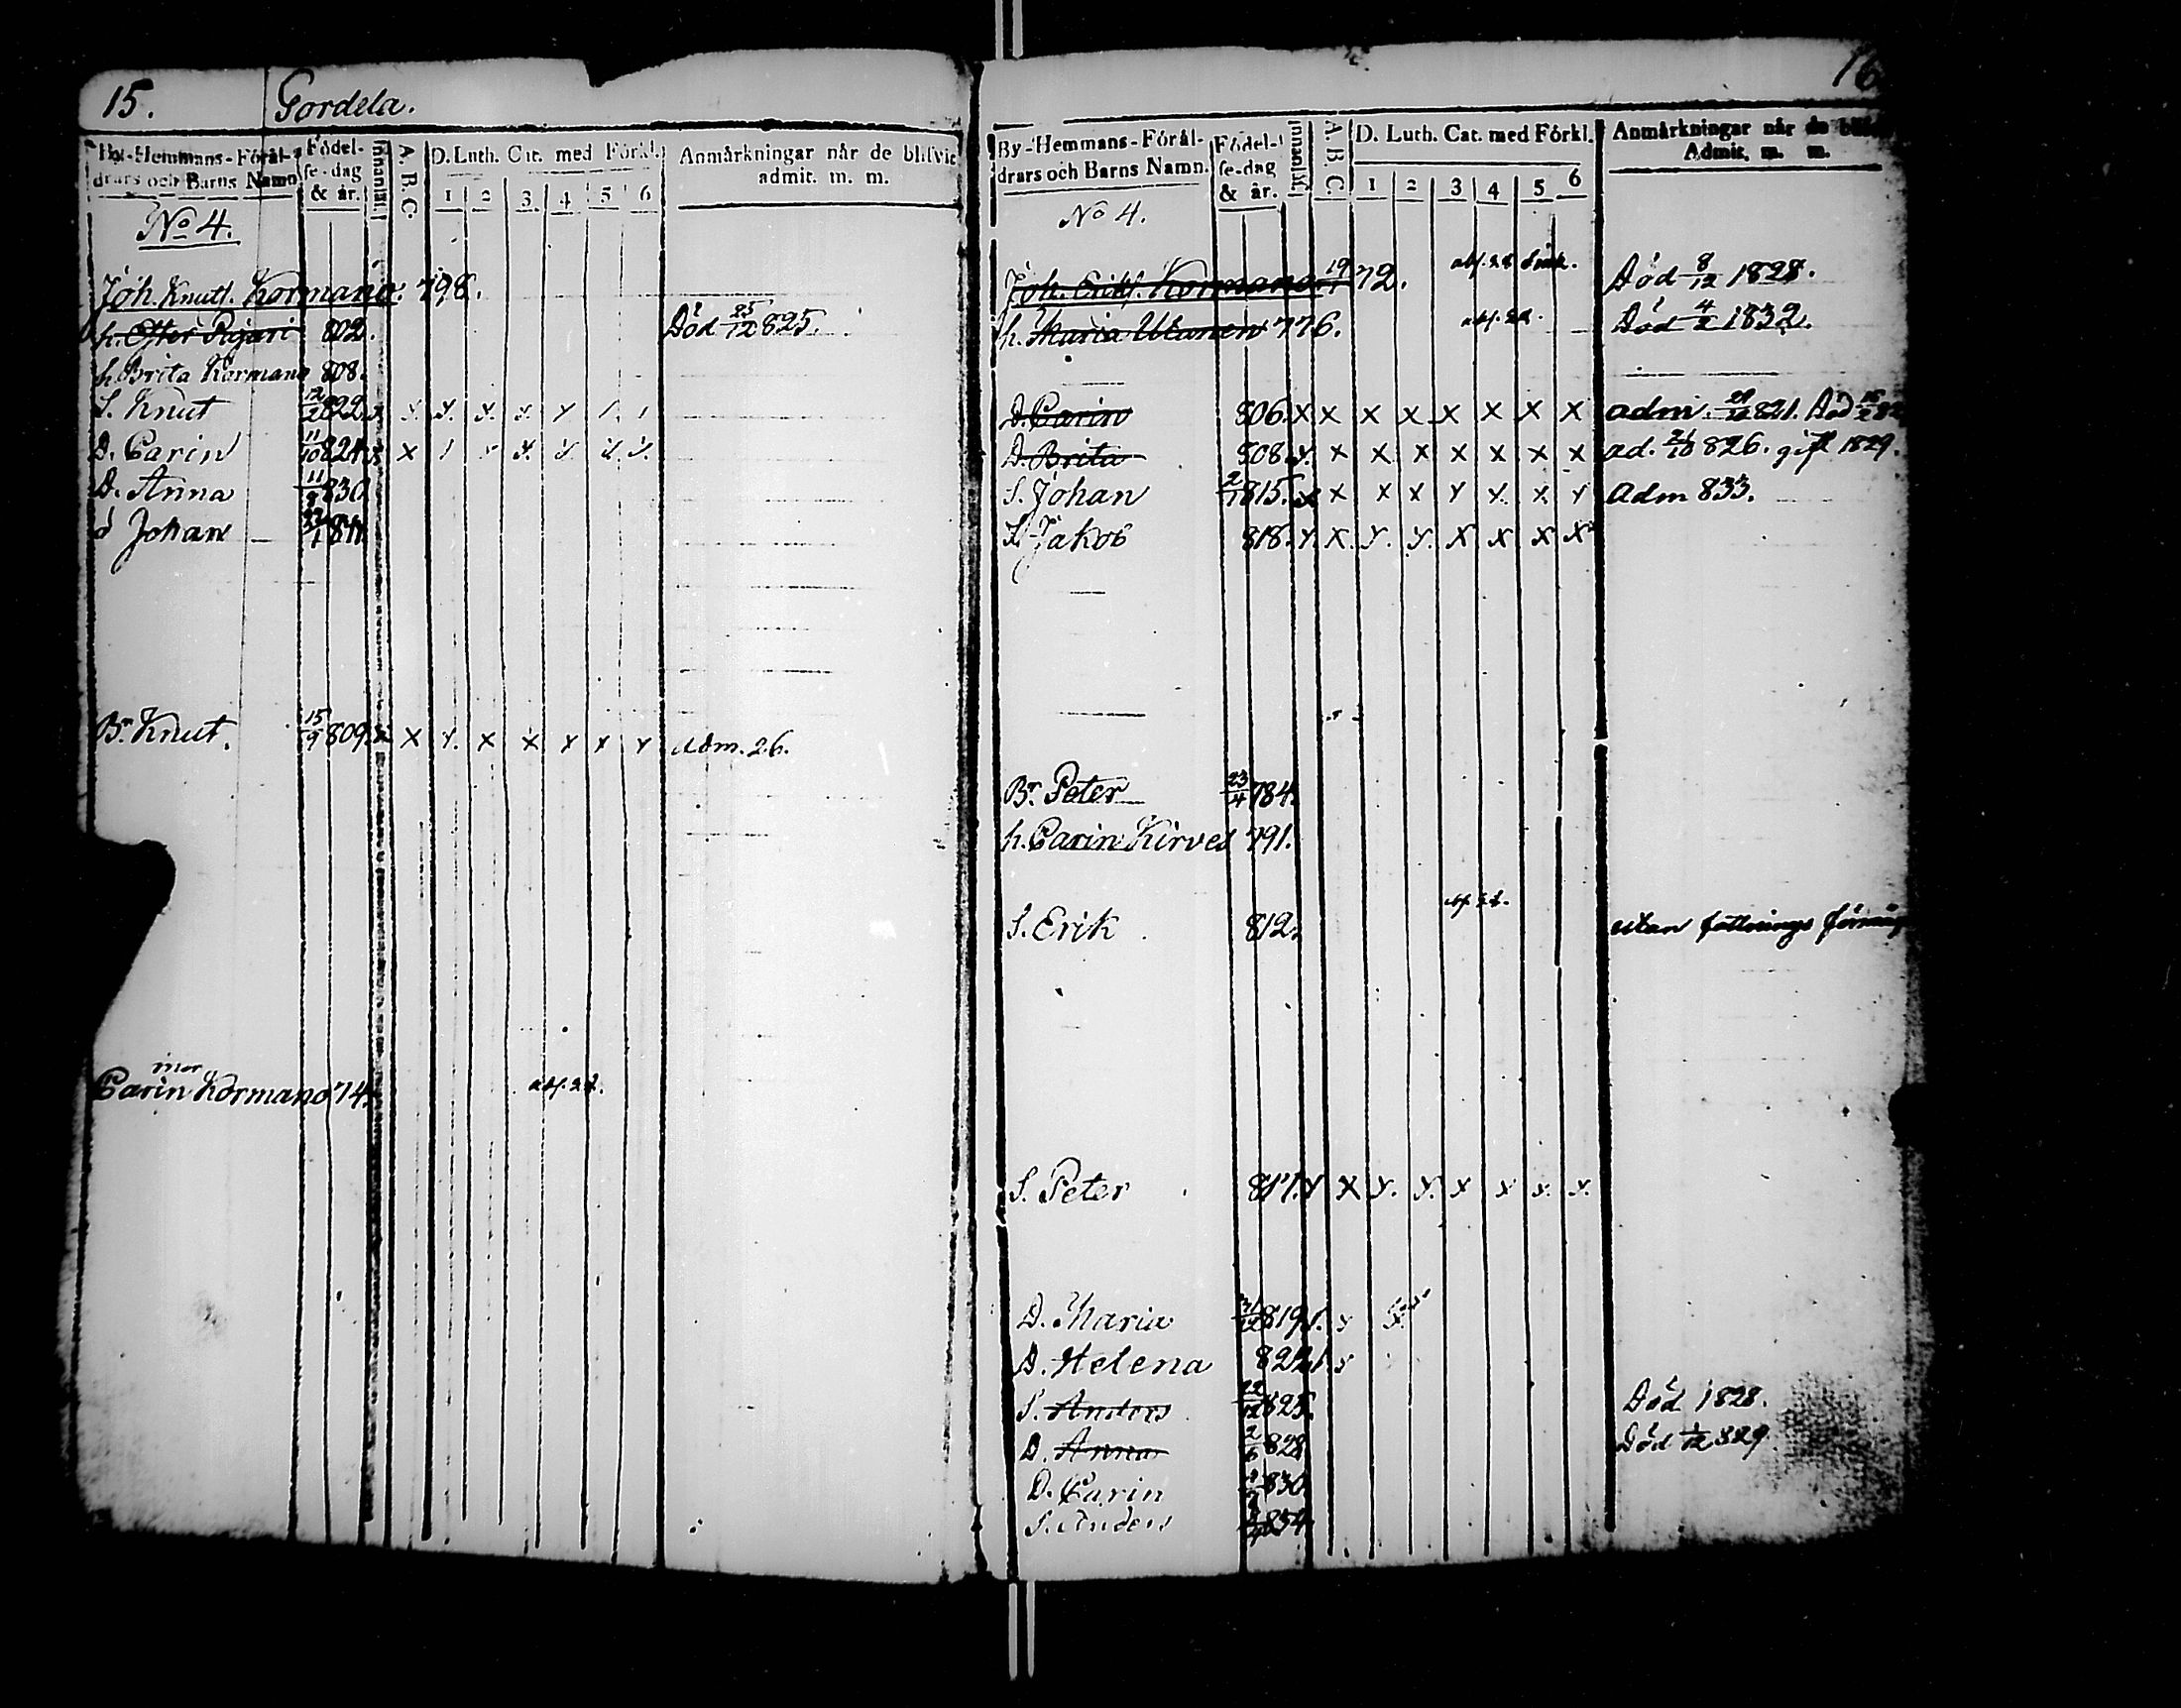 15. Gordela.
By-Hemmans-Föräl-drars och Barns Namn. Födel-se-dag & år. Innanläs. A.B.C. D. Luth. Cat. med Förkl. 1 2 3. 4 5 6 Anmärkningar når de blifvit admit. m. m.
No 4.
Joh. Knuts. Kormano. 798.
h. Ester Pigari 802. Död 25/12 825.
h. Brita Kormano 808.
S. Knut 12/2 822
D. Carin 11/10 824 x
D. Anna 11/8 830
Johan 1 841
Br. Knut. 15/9 809. x x y. x x x x y adm. 26.
mor
Carin Kormano 74.
16
By-Hemmans-Föräl-drars och Barns Namn. Födel-se-dag & år. A.B.C. D. Luth. Cat. med Förkl. 1 2 3 4 5 6 Anmärkningar når de Admit. m. m.
No 4.
Joh. Eriks. Kormano 19/1 72. Död 8/12 1828.
h. Maria Ukonen 776. Död 4/2 1832.
D. Carin 806. x x x x x x x x admi. 821. Död
D. Brita 808. y. x x x x x x x ad. 21/10 826. gift 1829.
S. Johan 2/1 815. x x x x y x. x. y Adm 833.
S. Jakob 818. y. x. y. y. x x x x
Br. Peter 23/4 784.
h. Carin Kirves 791.
S. Erik 812. utan fattnings
S. Peter 817. y x y. y. x x y. y.
D. Maria 819
D. Helena 822
S. Anders 22/12 825. Död 1828.
D. Anna 2/6 828 Död 829.
D. Carin 830
S. Anders 834